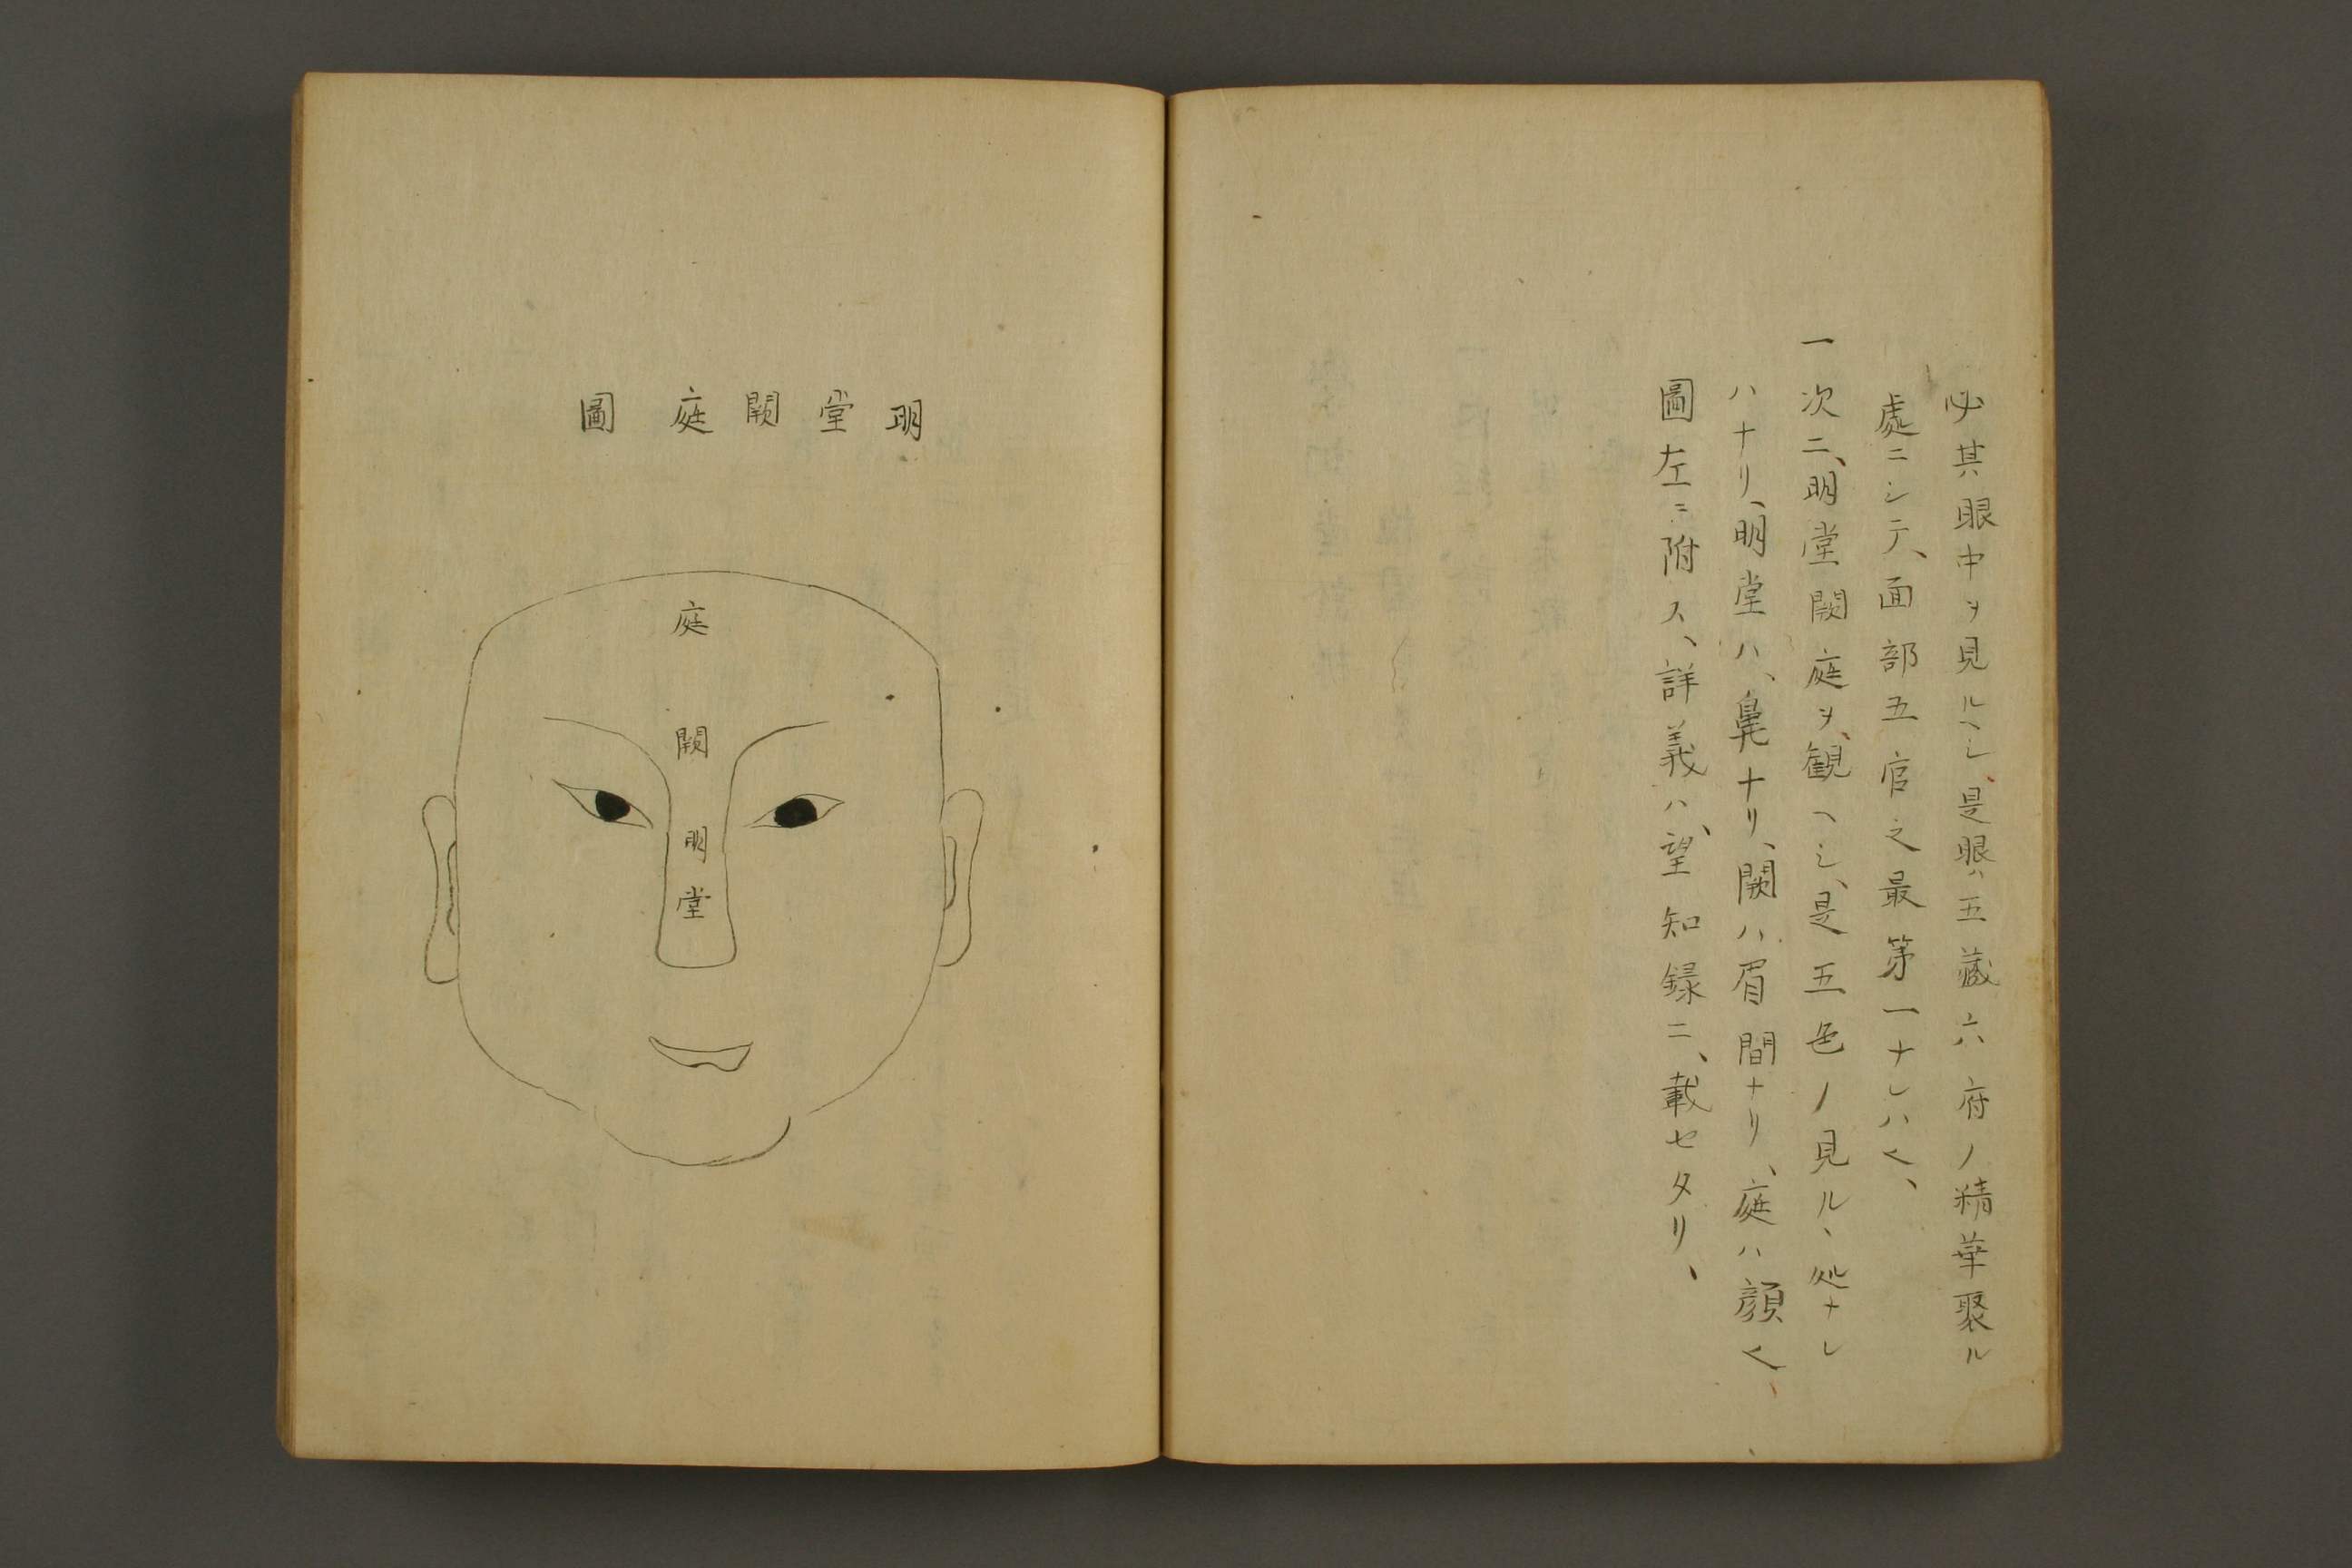 必其眼中ヲ見ルヘシ、是眼ハ五藏六府ノ精華聚ル
處ニシテ、面部五官之最第一ナレハ也、
一次ニ、明堂闕庭ヲ、観ヘシ、是五色ノ見ルヽ処ナレ
ハナリ、明堂ハ、鼻ナリ、闕ハ眉間ナリ、庭ハ顔也、
圖左ニ附ス、詳義ハ、望知録ニ、載セタリ、
明堂闕庭圖
庭
闕
明堂